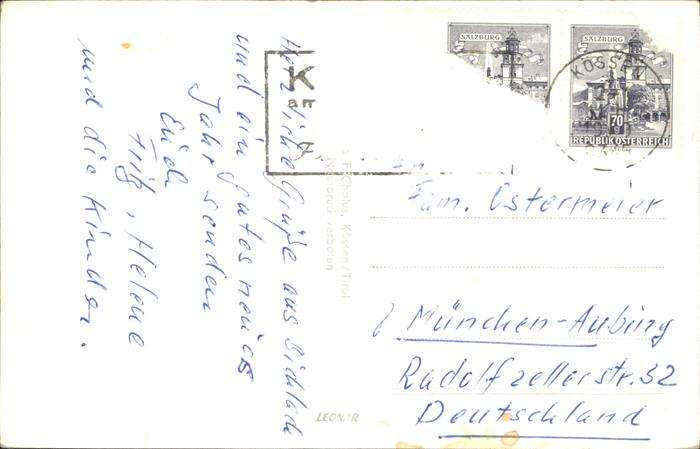 Herzliche Grüße aus
und ein gutes neues
Jahr senden
Euch
Fritz, Helene
und die Kinder.
SALZBURG
SALZBURG
KÖSSEN
70
REPUBLIK ÖSTERREICH
K
An
Fam. Ostermeier
München-Aubing
Radolfzellerstr. 32
Deutschland
Kössen/Tirol
verboten
LEONAR